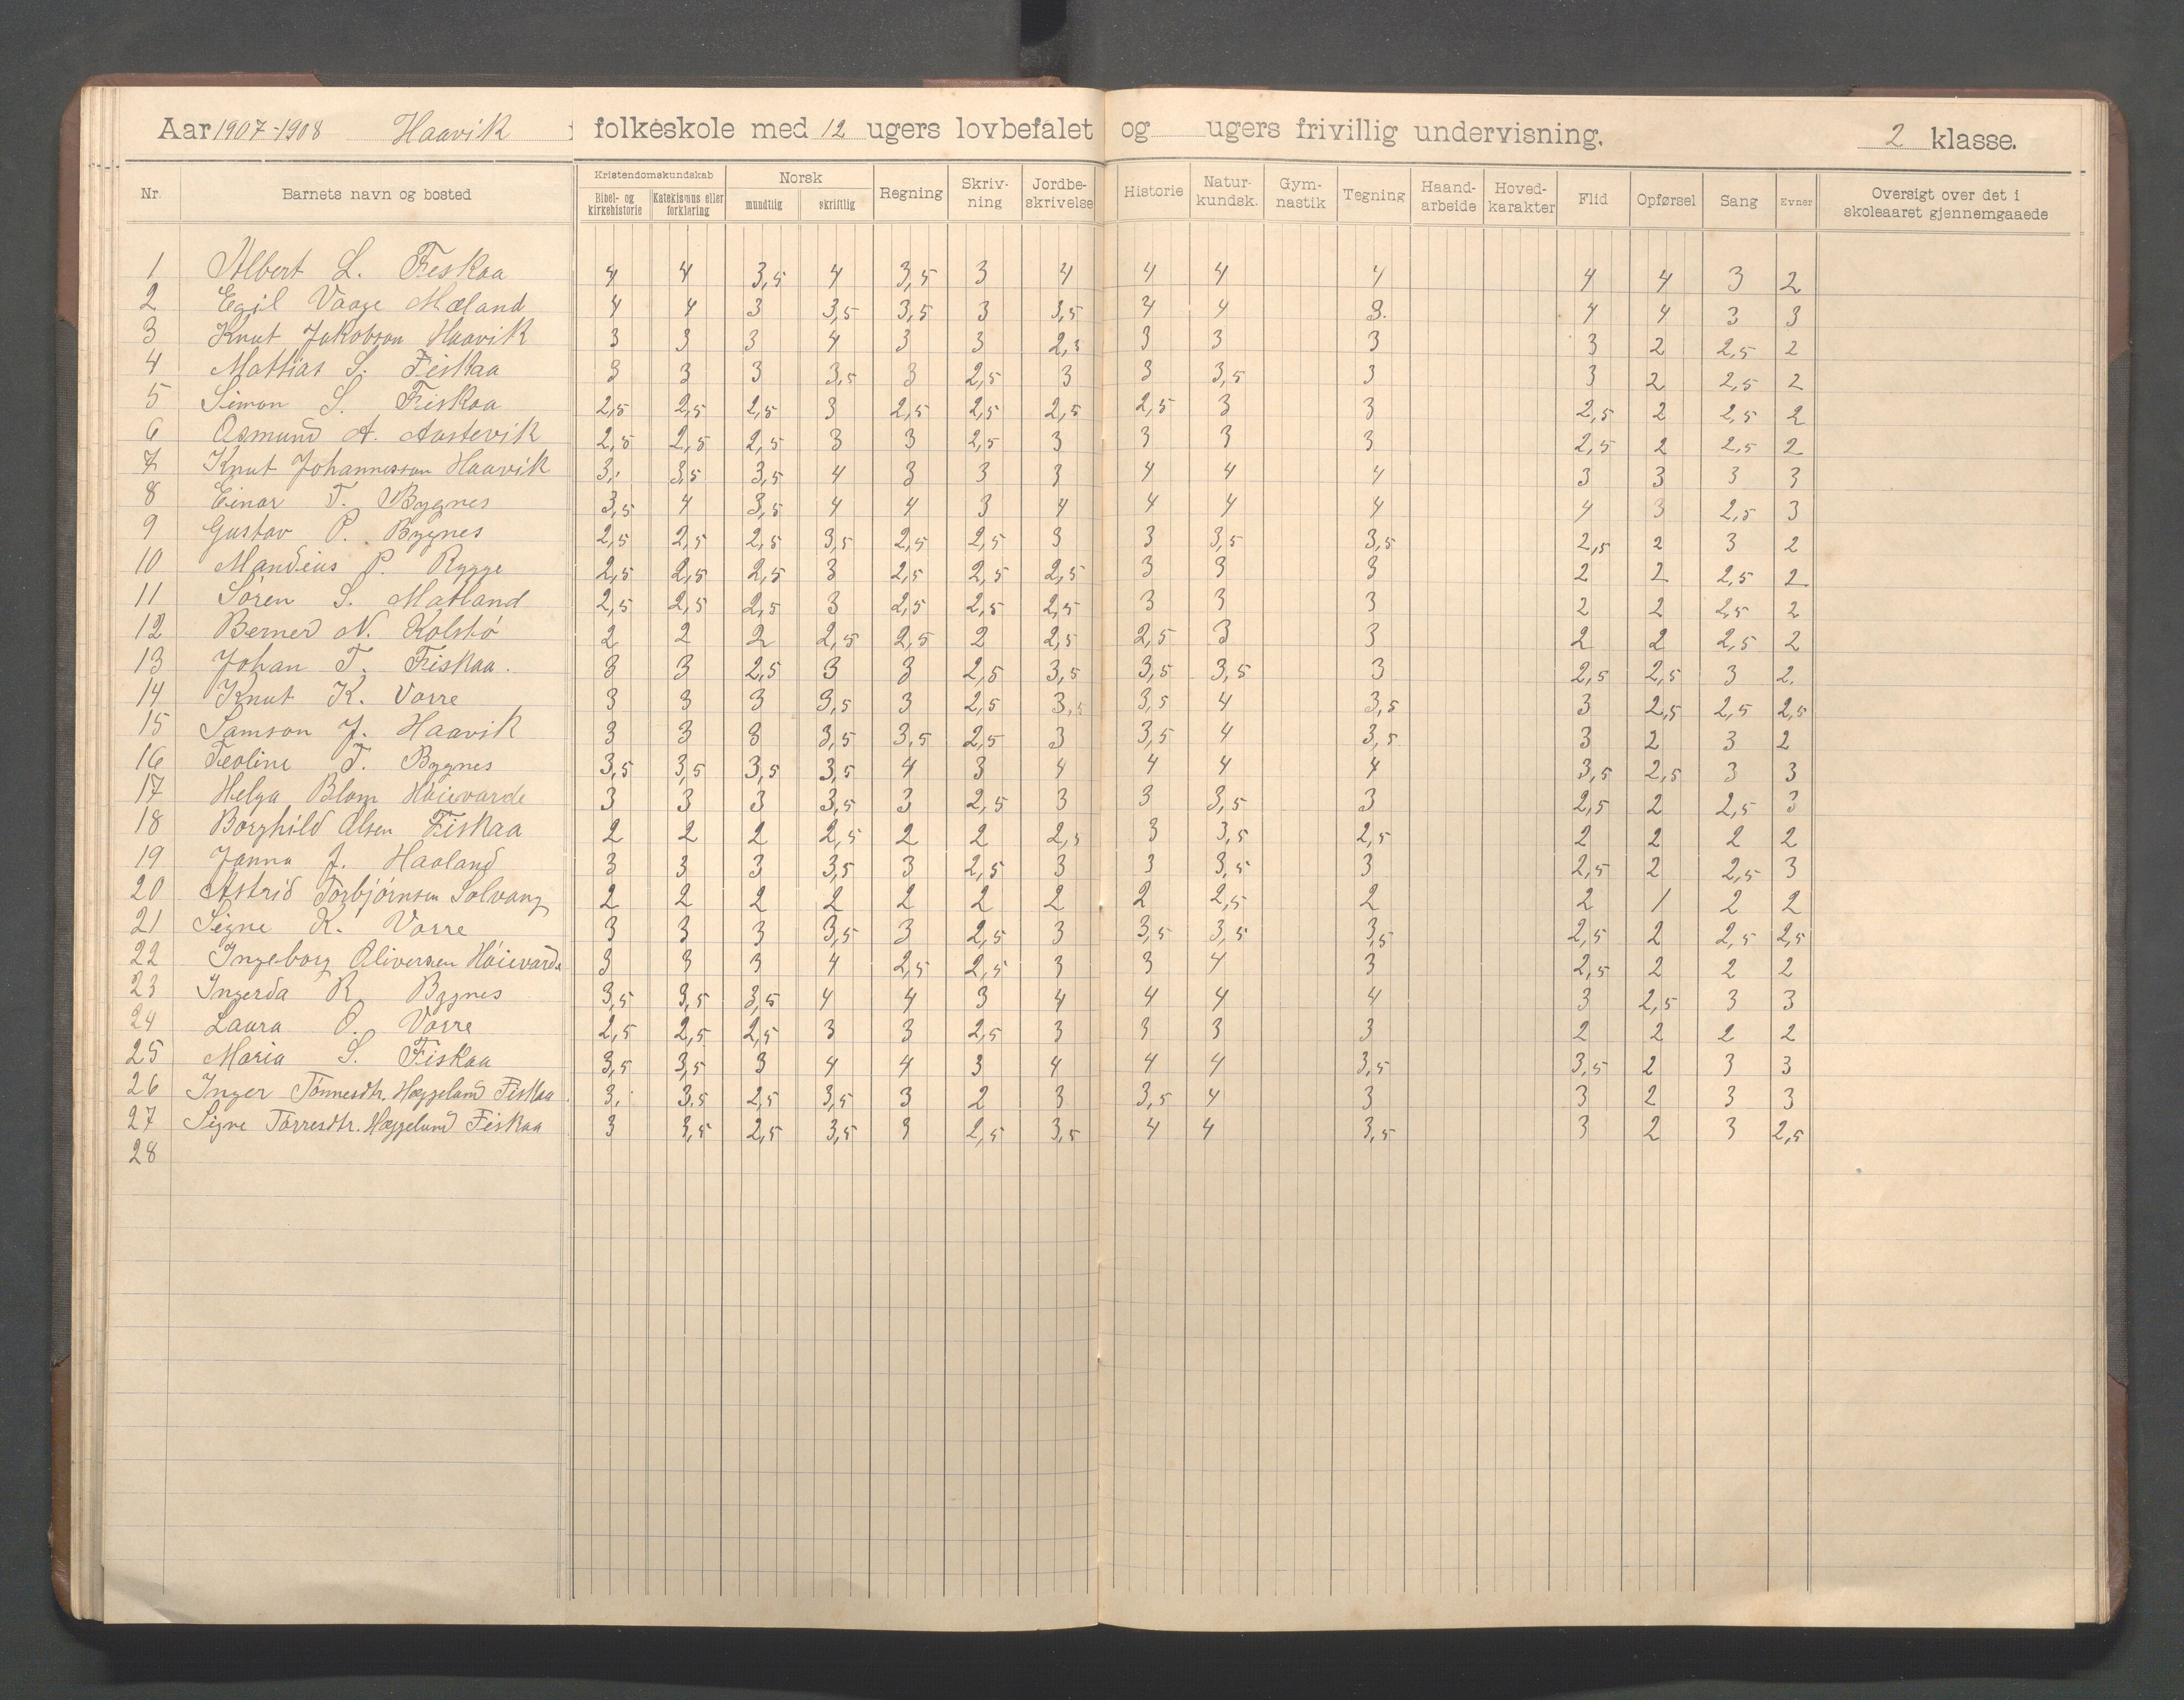 Aar 1907-1908 Haavik folkeskole med 12 ugers lovbefalet og ugers frivillig undervisning. 2 klasse.
Nr. Barnets navn og bosted Kristendomskundskab Bibel- og kirkehistorie Katekismus eller forklaring Norsk mundtlig skriftlig Regning Skriv-ning Jordbe-skrivelse Historie Natur-kundsk. Gym-nastik Tegning Haand-arbeide Hoved-karakter Flid Opførsel Sang Evner Oversigt over det i skoleaaret gjennemgaaede
1 Albert L. Fiskaa 4 4 3,5 4 3,5 3 4 4 4 4 4 4 3 2
2 Egil Vaage Mæland 4 4 3 3,5 3,5 3 3,5 4 4 3. 4 4 3 3
3 Knut Jakobson Haavik 3 3 3 4 3 3 2,5 3 3 3 3 2 2,5 2
4 Mathias S. Fiskaa 3 3 3 3,5 3 2,5 3 3 3,5 3 3 2 2,5 2
5 Simon S. Fiskaa 2,5 2,5 2,5 3 2,5 2,5 2,5 2,5 3 3 2,5 2 2,5 2
6 Osmund A. Austevik 2,5 2,5 2,5 3 3 2,5 3 3 3 3 2,5 2 2,5 2
7 Knut Johannesson Haavik 3, 3,5 3,5 4 3 3 3 4 4 4 3 3 3 3
8 Einar T. Bygnes 3,5 4 3,5 4 4 3 4 4 4 4 4 3 2,5 3
9 Gustav P. Bygnes 2,5 2,5 2,5 3,5 2,5 2,5 3 3 3,5 3,5 2,5 2 3 2
10 Mandeus P. Rygge 2,5 2,5 2,5 3 2,5 2,5 2,5 3 3 3 2 2 2,5 2
11 Sören S. Matland 2,5 2,5 2,5 3 2,5 2,5 2,5 3 3 3 2 2 2,5 2
12 Berner N. Kolstö 2 2 2 2,5 2,5 2 2,5 2,5 3 3 2 2 2,5 2
13 Johan T. Fiskaa. 3 3 2,5 3 3 2,5 3,5 3,5 3,5 3 2,5 2,5 3 2.
14 Knut K. Vorre 3 3 3 3,5 3 2,5 3,5 3,5 4 3,5 3 2,5 2,5 2,5
15 Samson J. Haavik 3 3 3 3,5 3,5 2,5 3 3,5 4 3,5 3 2 3 2
16 Teoline T. Bygnes 3,5 3,5 3,5 3,5 4 3 4 4 4 4 3,5 2,5 3 3
17 Helga Blom Höievarde 3 3 3 3,5 3 2,5 3 3 3,5 3 2,5 2 2,5 3
18 Borghild Olsen Fiskaa 2 2 2 2,5 2 2 2,5 3 3,5 2,5 2 2 2 2
19 Janna J. Haaland 3 3 3 3,5 3 2,5 3 3 3,5 3 2,5 2 2,5 3
20 Astrid Torbjörnsen Solvang 2 2 2 2 2 2 2 2 2,5 2 2 1 2 2
21 Signe K. Vorre 3 3 3 3,5 3 2,5 3 3,5 3,5 3,5 2,5 2 2,5 2,5
22 Ingeborg Oliversen Höievarde 3 3 3 4 2,5 2,5 3 3 4 3 2,5 2 2 2
23 Ingerda R Bygnes 3,5 3,5 3,5 4 4 3 4 4 4 4 3 2,5 3 3
24 Laura O. Vorre 2,5 2,5 2,5 3 3 2,5 3 3 3 3 2 2 2 2
25 Maria S. Fiskaa 3,5 3,5 3 4 4 3 4 4 4 3,5 3,5 2 3 3
26 Inger Tönnesdtr. Hæggelund Fiskaa 3, 3,5 2,5 3,5 3 2 3 3,5 4 3 3 2 3 3
27 Signe Torresdtr. Hæggelund Fiskaa 3 3,5 2,5 3,5 3 2,5 3,5 4 4 3,5 3 2 3 2,5
28